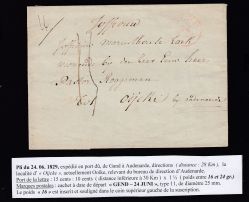 16
Joffrouw
Joffrouw
by den heer
Pastor
tot Oijcke by audenaerde
PS du 24. 06. 1829, expédié en port dû, de Gand à Audenarde, directions (distance : 26 Km), la
localité d' « Oijcke », actuellement Ooike, relevant du bureau de direction d'Audenarde.
Port de la lettre : 15 cents : 10 cents (distance inférieure à 30 Km) x 1½ (poids entre 16 et 24 gr.)
Marques postales : cachet à date de départ « GEND – 24 JUNI », type 11, de diamètre 25 mm.
Le poids « 16 » est inscrit et souligné dans le coin supérieur gauche de la suscription.